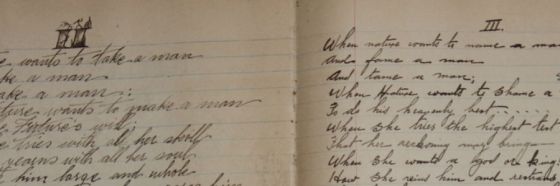 wants to take a man
a man
a man;
wants to make a man
Future's will;
tries with all her skill
yearns with all her soul
him large and whole
him
III.
When nature wants to name a
And fame a man
And tame a man;
When Nature wants to shame a
To do his heavenly best ....
When She tries the highest test
That her reckoning may bring—
When She wants a god or king
How She reins him and